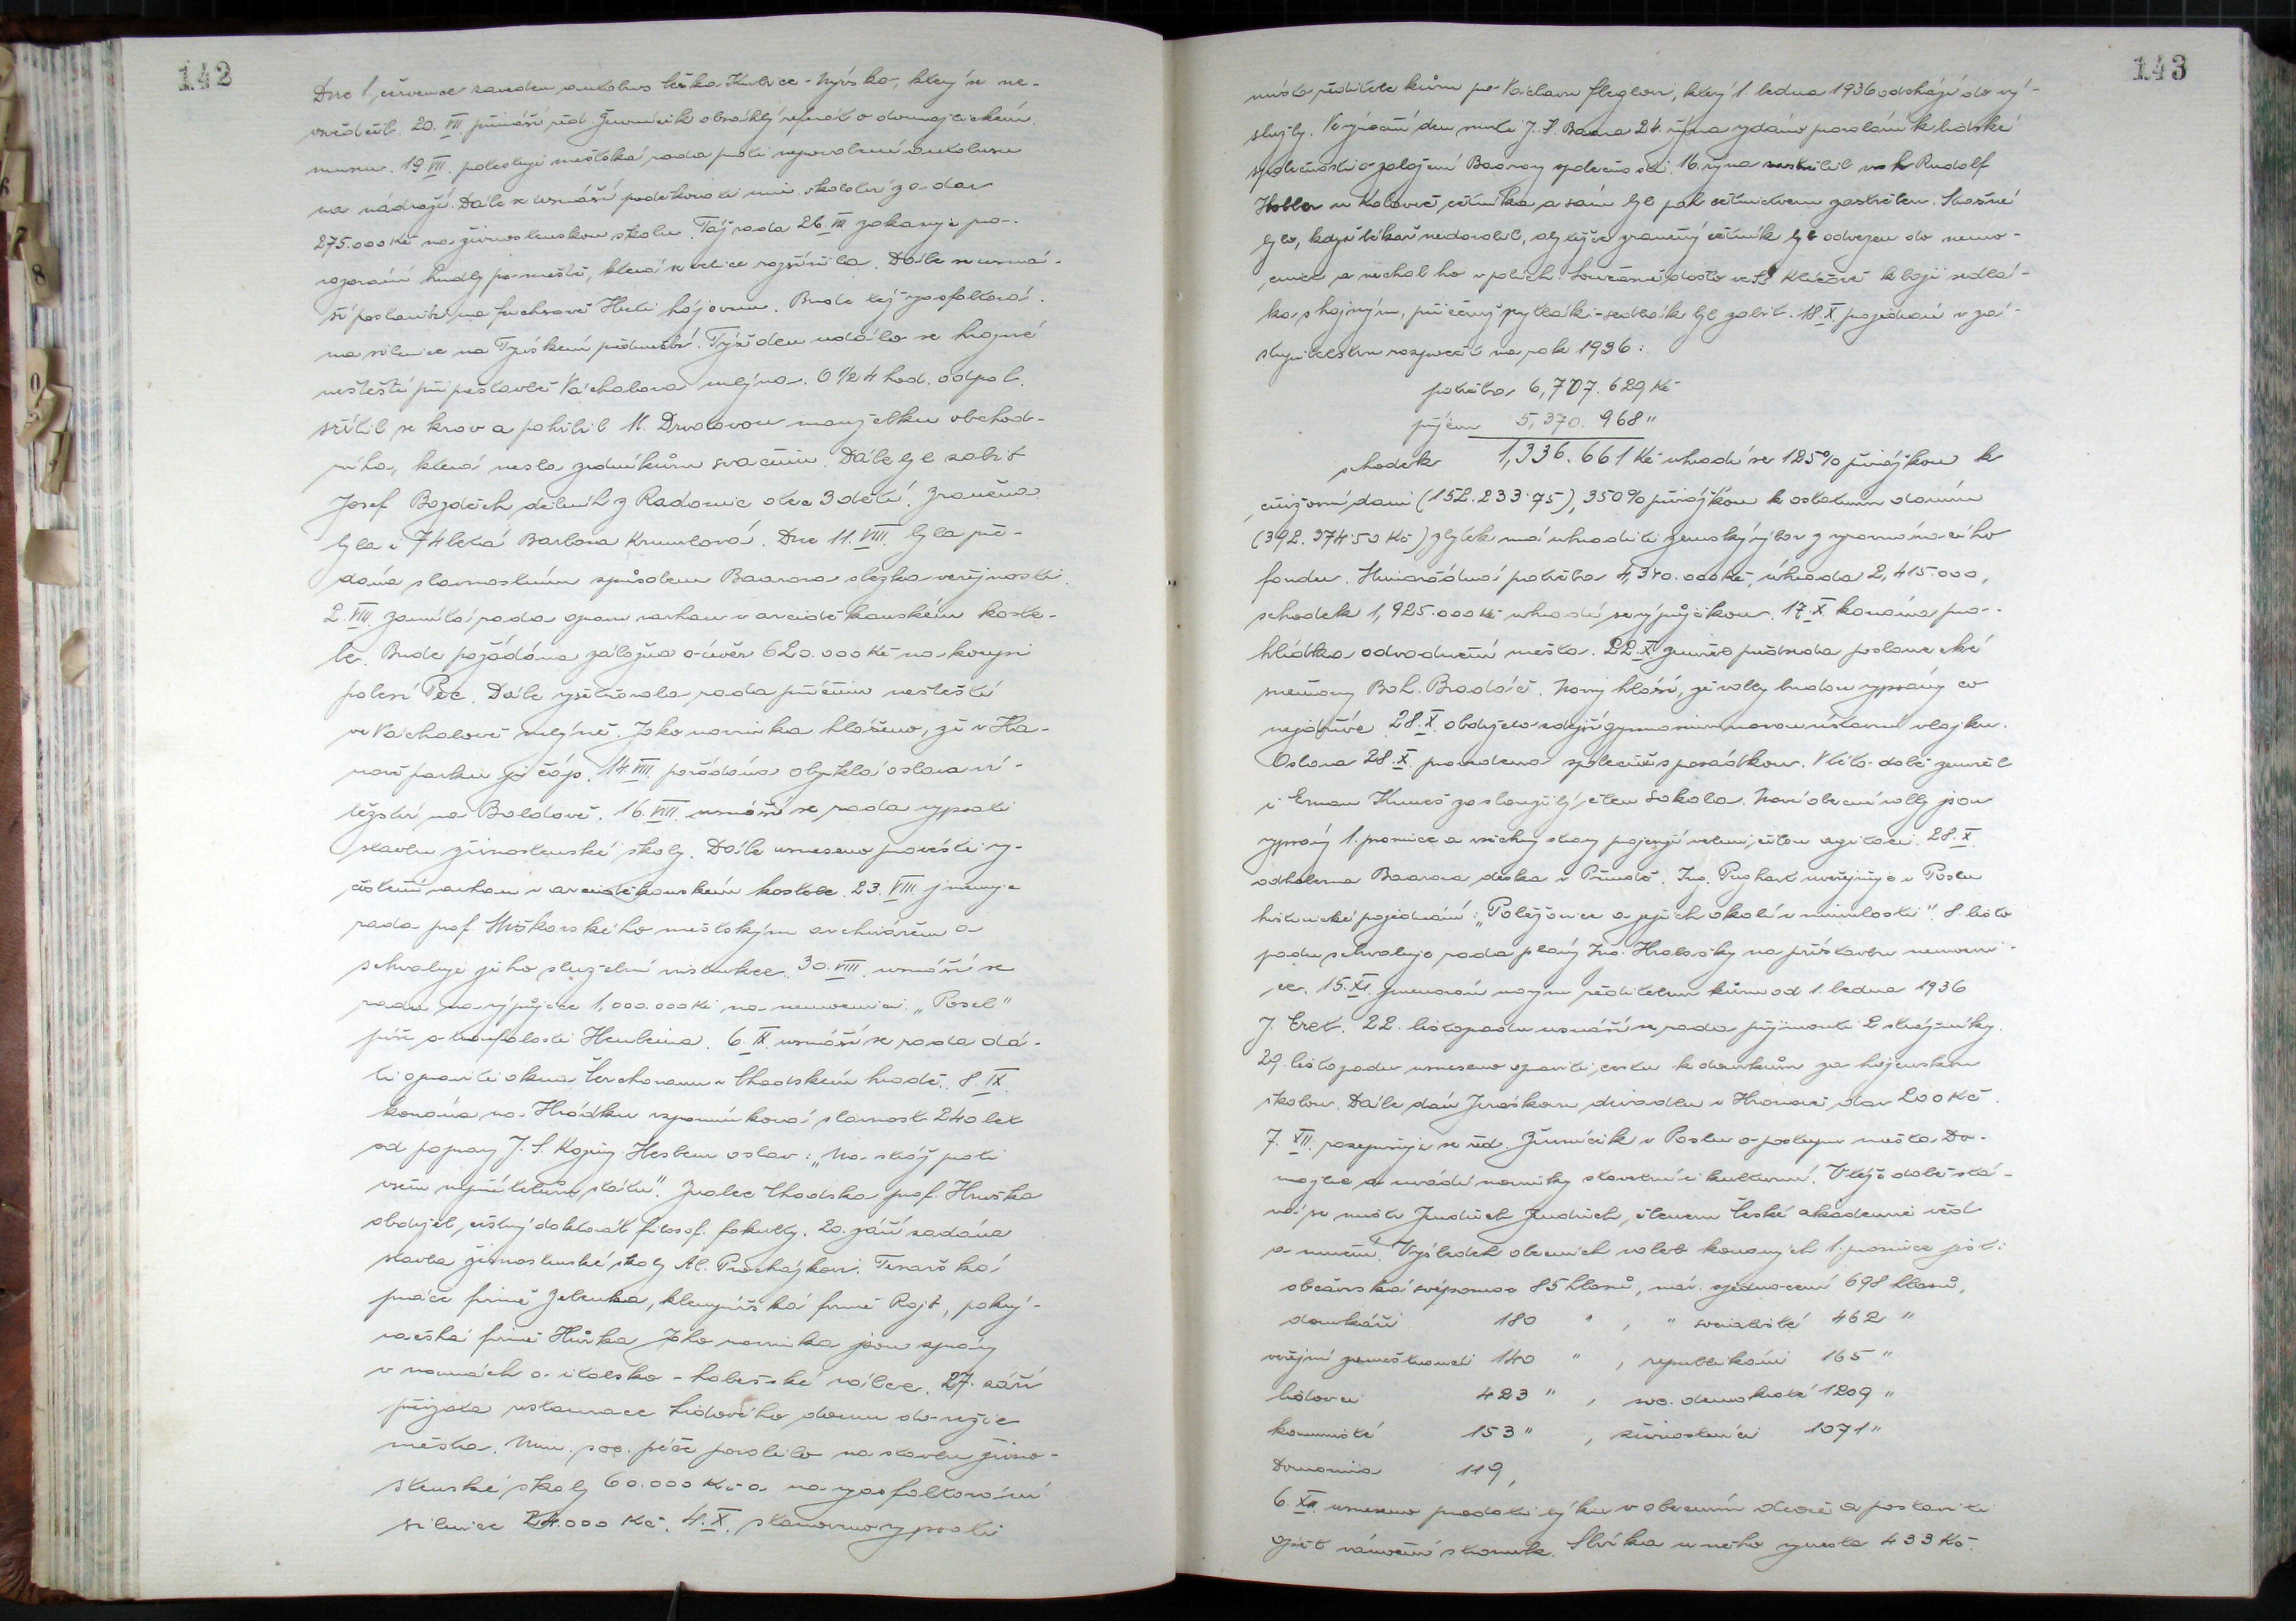 142
Dne 1. července zaveden autobus Česká Kubice - Nýrsko, který se ne-
osvědčil. 20. VII. přináší řed. Žurnúcik obsáhlý referát o domažlickém
museu. 19. VII. protestuje městská rada proti nepovolení autobusu
na nádraží. Dále se usnáší poděkovati min. školství za dar
275.000 Kč na živnostenskou školu. Táž rada 26. VII zakazuje po-
zorování hudby po městě, která se velice rozšířila. Dále se usná-
ší postaviti na fuchsově Huti hájovnu. Bude též vyasfaltová-
na silnice na Týnském předměstí. Týž den událo se hrozné
neštěstí při přestavbě Váchalova mlýna. O 1/2 4 hod. odpol.
zřítil se krov a pohřbil M. Drvotovou manželku obchod-
níka, která nesla zedníkům svačinu. Dále byl zabit
Josef Bozděch dělník z Radonic otec 3 dětí. Zraněna
byla i 74letá Barbora Krumlová. Dne 11. VIII. byla pře-
dána slavnostním způsobem Baarova stezka veřejnosti.
2. VIII. zamítá rada opravu varhan v arciděkanském koste-
le. Bude požádána záložna o úvěr 620.000 Kč na koupi
polesí Pec. Dále vyšetřovala rada příčinu neštěstí
ve Váchalově mlýně. Jako novinka hlášeno, že v Ha-
nově parku je čáp. 14. VIII. pořádána obvyklá oslava ví-
tězství na Baldově. 16. VIII. usnáší se rada vypsati
stavbu živnostenské školy. Dále usneseno provésti vy-
čištění varhan v arciděkanském kostele. 23. VIII. jmenuje
rada prof. Miškovského městským archivářem a
schvaluje jeho služební instrukce. 30. VIII. usnáší se
rada na výpůjčce 1,000.000 Kč na nemocnici. "Posel"
píše o troufalosti Henleina. 6. IX. usnáší se rada dá-
ti opraviti okna Čerchovanu v Chodském hradě. 8. IX.
konána na Hrádku vzpomínková slavnost 240 let
od popravy J. S. Koziny Heslem oslav: "Na stráž proti
všem nepřátelům státu". Znalec Chodska prof. Hruška
obdržel čestný doktorát filosof. fakulty. 20. září zadána
stavba živnostenské školy Al. Procházkovi. Tesařská
práce firmě Zelenka, klempířská firmě Rojt, pokrý-
vačská firmě Hůrka Jako novinka jsou zprávy
v novinách o italsko - habešské válce. 27. září
přijata restaurace Lidového domu do režie
města. Min. soc. péče povolilo na stavbu živno-
stenské školy 60.000 Kč a na vyasfaltování
silnice 24.000 Kč. 4. X. stanoveno vypsati
143
místo ředitele kůru po Václavu Fleglovi, který 1. ledna 1936 odchází do vý-
služby. Ve výroční den smrti J. Š. Baara 24. října vydáno provolání k lidské
společnosti o založení Baarovy společnosti. 16. října zastřelil vrah Rudolf
Hobler u Kálovů četníka a sám byl pak četnictvem zastřelen. Strašné
bylo, když lékař nedovolil, aby těžce zraněný četník byl odvezen do nemo-
cnice a nechal ho v polích. Současně došlo ve St. Klíčově k boji sedlá-
ka s hajným, při čemž pytlák-sedlák byl zabit. 18. X. projednán v za-
stupitelstvu rozpočet na rok 1936:
potřeba 6,707.629 Kč
příjem 5,370.968 "
schodek 1,336.661 Kč uhradí se 125% přirážkou k
činžovní dani (152.233·75), 350% přirážkou k ostatním daním
(392.374·50 Kč) zbytek má uhraditi zemský výbor z vyrovnávacího
fondu. Mimořádná potřeba 4,340.000 Kč, úhrada 2,415.000,
schodek 1,925.000 Kč uhradí se výpůjčkou. 17. X. konána pro-
hlídka odvodnění města. 22. X. zemřel předseda poslanecké
sněmovny Boh. Bradáč. Noviny hlásí, že volby budou vypsány co
nejdříve. 28. X. obdrželo zdejší gymnasium novou ústavní vlajku.
Oslava 28. X. provedena společně s posádkou. V této době zemřel
i Eman Kuneš zasloužilý člen Sokola. Nové obecní volby jsou
vypsány 1. prosince a všechny strany projevují velmi čilou agitaci. 28. X.
odhalena Baarova deska v Přímdě. Ing. Prokart uveřejňuje v Poslu
historické pojednání: "Poběžovice a jejich okolí v minulosti". 8. listo
padu schvaluje rada plány Ing. Hrabovky na přístavbu nemocni-
ce. 15. XI. jmenován novým ředitelem kůru od 1. ledna 1936
J. Eret. 22. listopadu usnáší se rada přijmouti 2 strážníky.
29. listopadu usneseno opraviti cestu k domkům za hájenskou
školou. Dále dán Jiráskovu divadlu v Hronově dar 200 Kč.
7. XII. rozepisuje se řed. Žurnúcik v Poslu o postupu města Do-
mažlic a uvádí novinky stavební i kulturní. V téže době stá-
vá se mistr Jindřich Jindřich, členem České akademie věd
a umění. Výsledek obecních voleb konaných 1. prosince jest:
občanská svépomoc 85 hlasů, nár. sjednocení 698 hlasů,
domkáři 180 " , " socialisté 462 "
veřejní zaměstnanci 140 " , republikáni 165 "
lidovci 423 " , soc. demokraté 1209 "
komunisté 153 " , živnostníci 1071 "
Domovina 119,
6. XII. usneseno prodati býka v obecním dvoře a postaviti
opět vánoční stromek. Sbírka u něho vynesla 433 Kč.